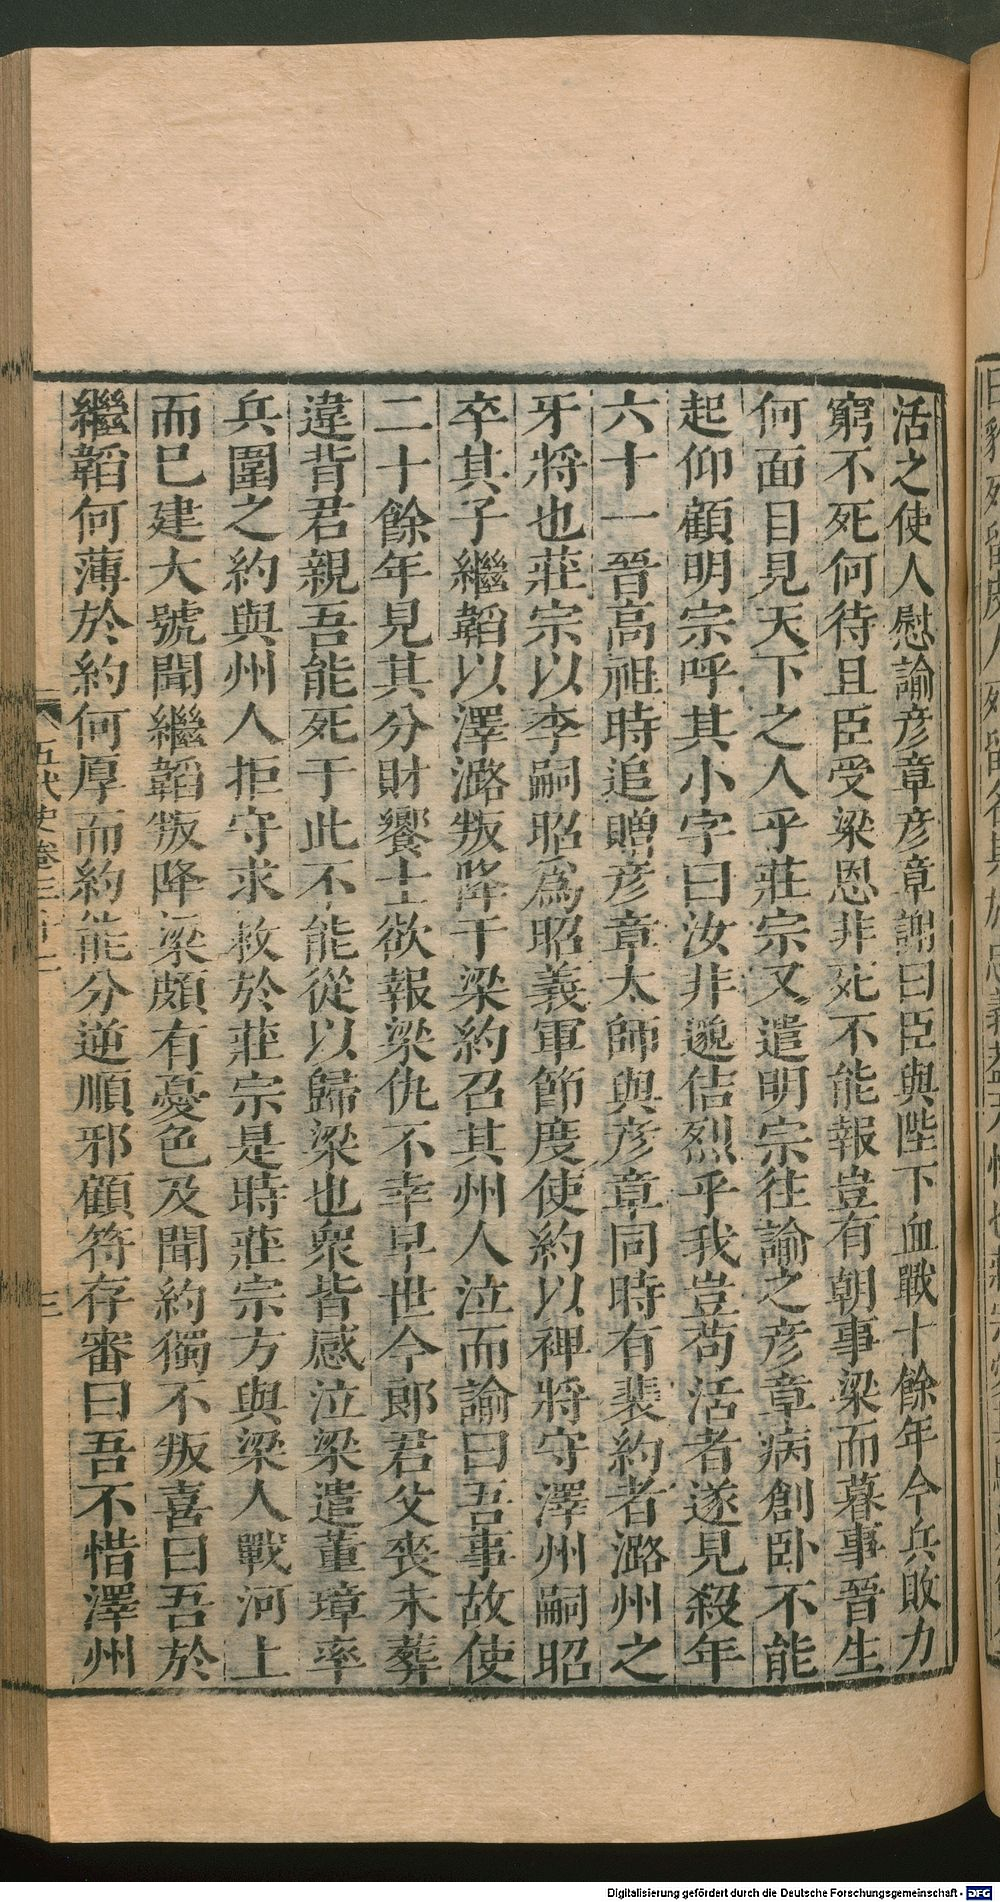 活之使人慰諭彦章彦章謝曰臣與陛下血戰十餘年今兵敗力
窮不死何待且臣受梁恩非死不能報豈有朝事梁而暮事晉生
何面目見天下之人乎莊宗又遣明宗往諭之彦章病創卧不能
起仰顧明宗呼其小字曰汝非邈佶烈乎我豈苟活者遂見殺年
六十一晉高祖時追贈彦章太師與彦章同時有裴約者潞州之
牙將也莊宗以李嗣昭爲昭義軍節度使約以裨將守澤州嗣昭
卒其子繼韜以澤潞叛降于梁約召其州人泣而諭曰吾事故使
二十餘年見其分財饗士欲報梁仇不幸早世今郎君父喪未葬
違背君親吾能死于此不能從以歸梁也衆皆感泣梁遣董璋率
兵圍之約與州人拒守求救於莊宗是時莊宗方與梁人戰河上
而已建大號聞繼韜叛降梁頗有憂色及聞約獨不叛喜曰吾於
繼韜何薄於約何厚而約能分逆順邪顧符存審曰吾不惜澤州
五代史卷三
三
Digitalisierung gefördert durch die Deutsche Forschungsgemeinschaft - DFG